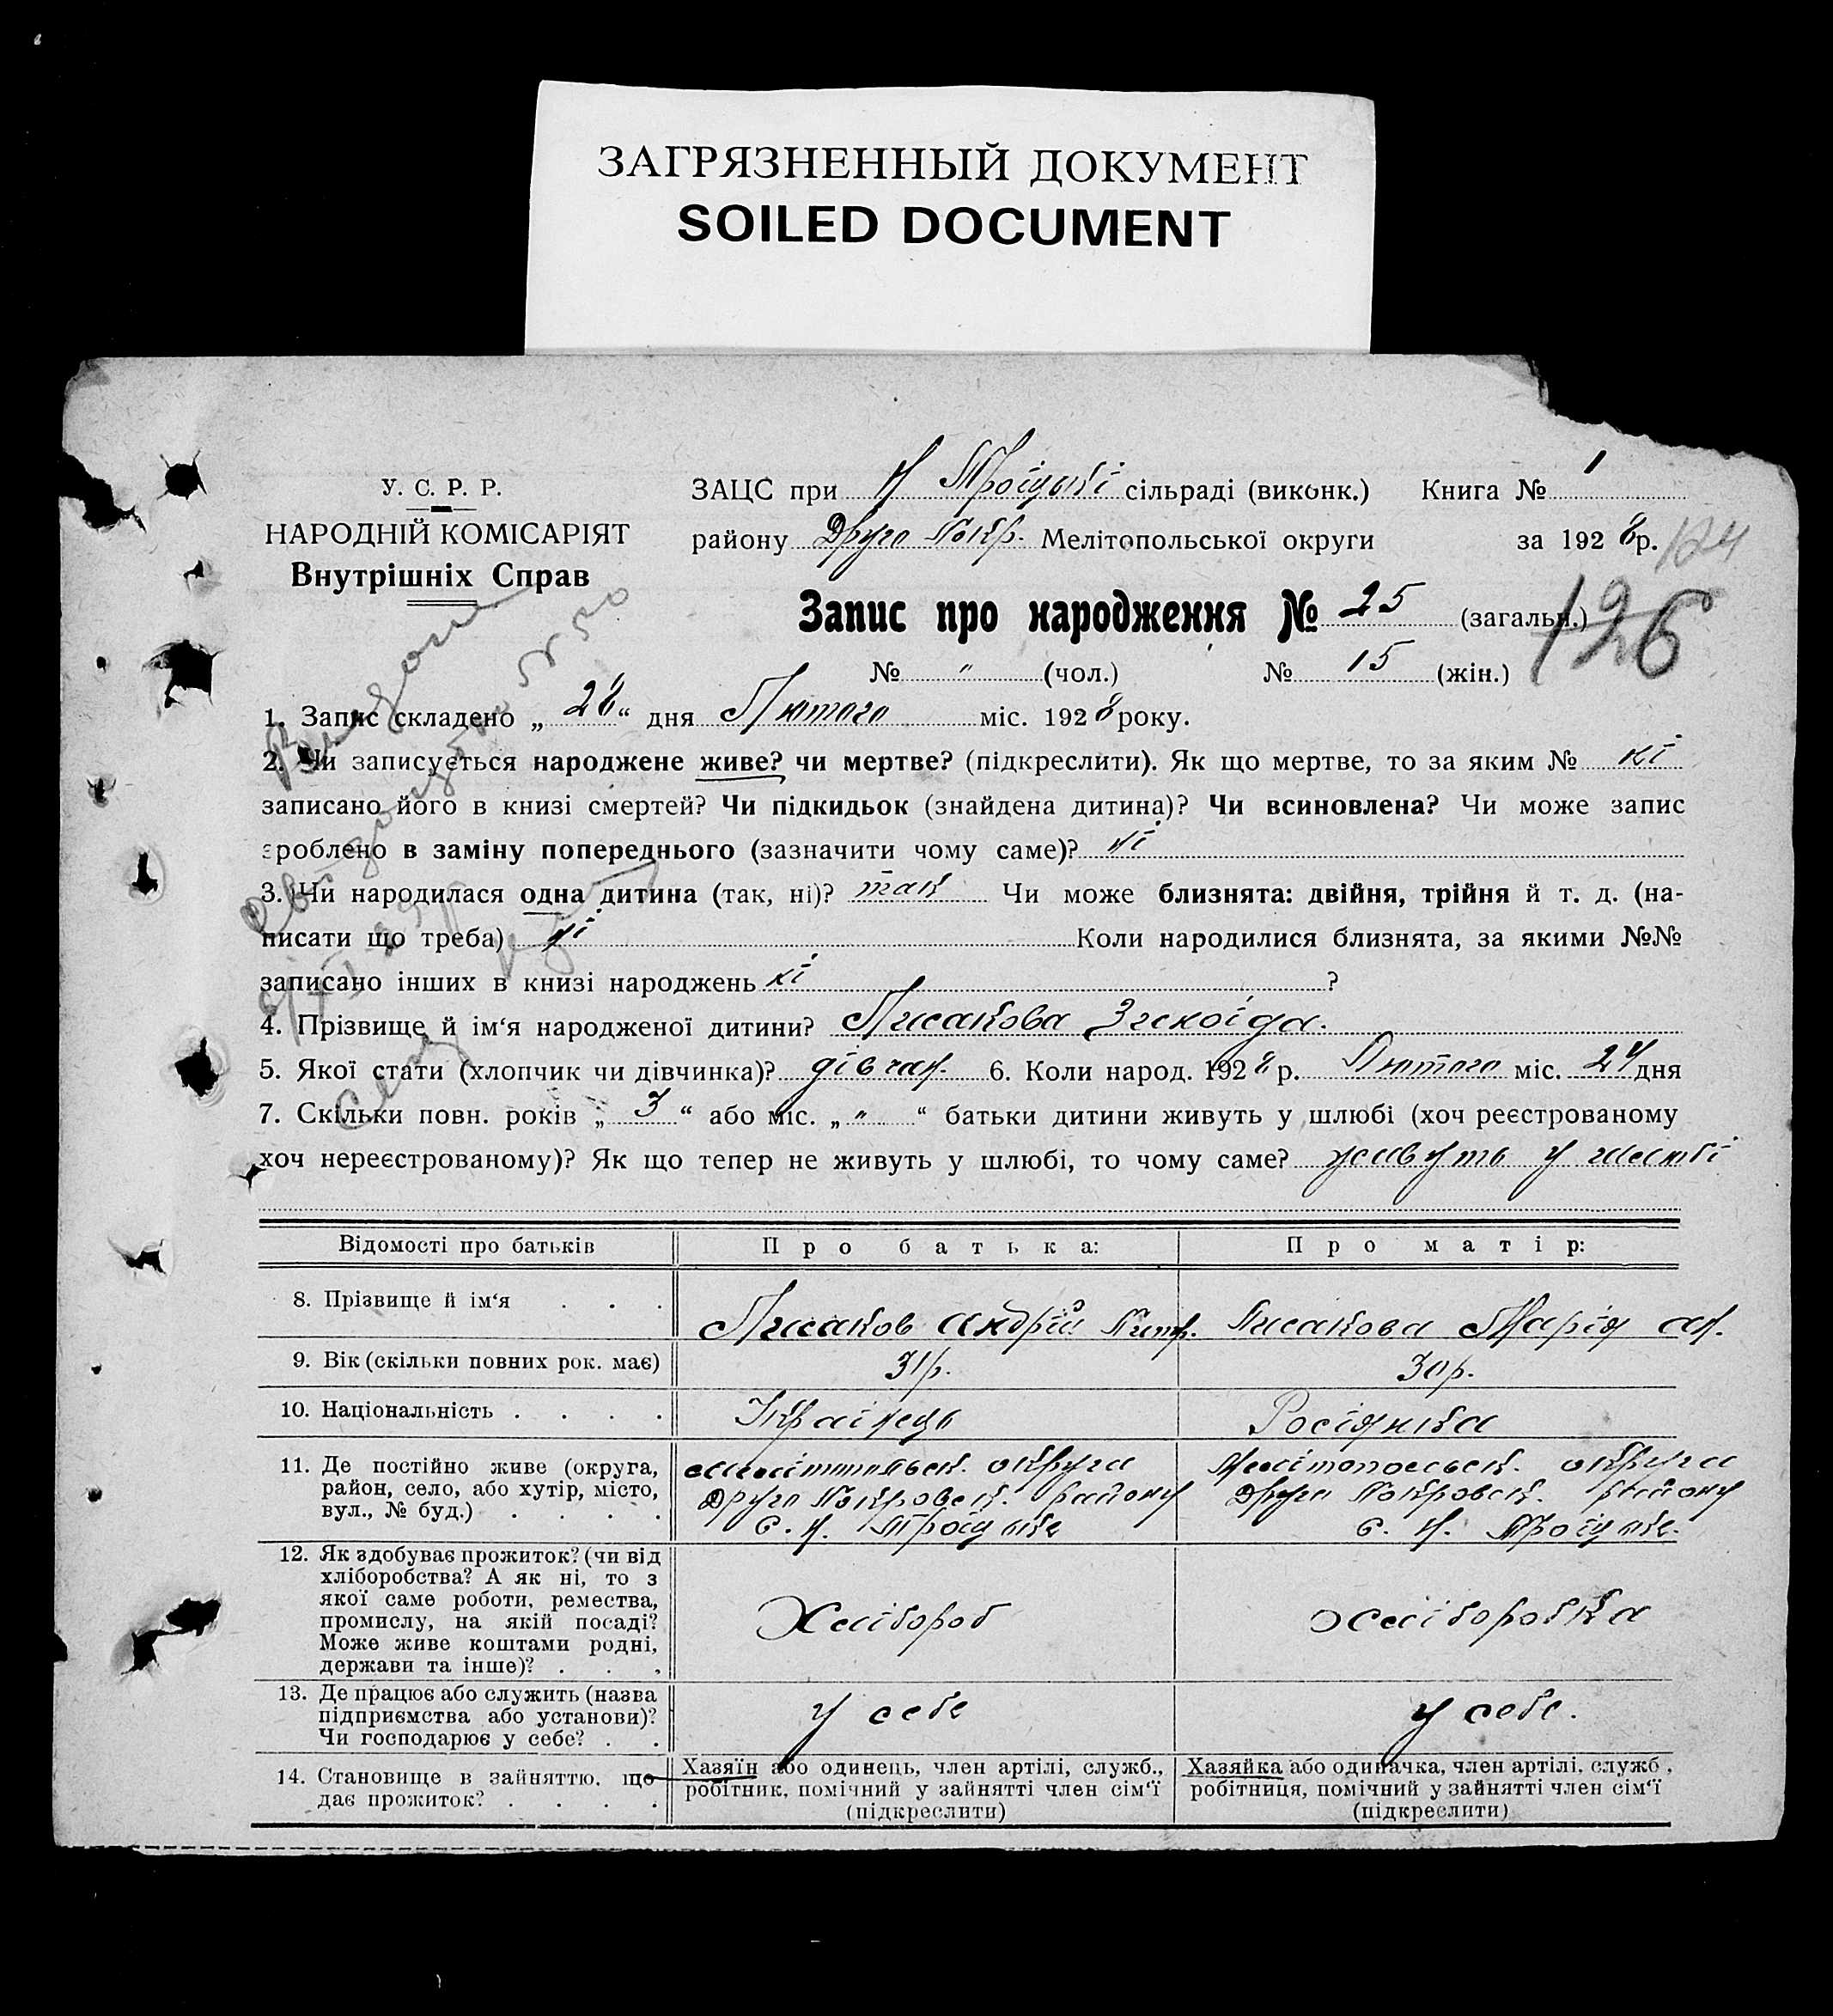 ЗАГРЯЗНЕННЫЙ ДОКУМЕНТ
SOILED DOCUMENT
У. С. Р. Р.
НАРОДНІЙ КОМІСАРІЯТ
Внутрішніх Справ
ЗАЦС при Н Троіцькі сільраді (виконк.) Книга № 1
району Друго Покр. Мелітопольської округи за 1928р.
124
126
Запис про народження № 25 (загальн.)
№ " (чол.) № 15 (жін.)
1. Запис складено „ 28 “ дня Лютого міс. 1928 року.
2. Чи записується народжене живе? чи мертве? (підкреслити). Як що мертве, то за яким № ні
записано його в книзі смертей? Чи підкидьок (знайдена дитина)? Чи всиновлена? Чи може запис
зроблено в заміну попереднього (зазначити чому саме)? ні
3. Чи народилася одна дитина (так, ні)? так Чи може близнята: двійня, трійня й т. д. (на-
писати що треба) ні Коли народилися близнята, за якими №№
записано інших в книзі народжень ні ?
4. Прізвище й ім‘я народженої дитини? Лисакова Зиноіда.
5. Якої стати (хлопчик чи дівчинка)? дівчан. 6. Коли народ. 1928 р. Лютого міс. 24 дня
7. Скільки повн. років „ 3 “ або міс. „ " “ батьки дитини живуть у шлюбі (хоч реєстрованому
хоч нереєстрованому)? Як що тепер не живуть у шлюбі, то чому саме? живуть у шлюбі
Відомості про батьків Про батька: Про матір:
8. Прізвище й ім‘я . . . Лисаков Андрій Лисакова Марія
9. Вік (скільки повних рок. має) 31р. 30р.
10. Національність . . . . Украінець Росіянка
11. Де постійно живе (округа, Мелітопольськ. округи Мелітопольськ. округи
район, село, або хутір, місто, Друго Покровськ. району Друго Покровськ. району
вул., № буд.) . . . . с. Н. Троіцьке с. Н. Троіцьке.
12. Як здобуває прожиток? (чи від
хліборобства? А як ні, то з
якої саме роботи, ремества,
промислу, на якій посаді? Хлібороб хліборобка
Може живе коштами родні,
держави та інше)? . . .
13. Де працює або служить (назва
підприємства або установи)? у себе у себе.
Чи господарює у себе? . .
14. Становище в зайняттю, що Хазяїн або одинець, член артілі, служб., Хазяйка або одиначка, член артілі, служб.,
дає прожиток? . . . . робітник, помічний у зайнятті член сім‘ї робітниця, помічний у зайнятті член сім‘ї
(підкреслити) (підкреслити)